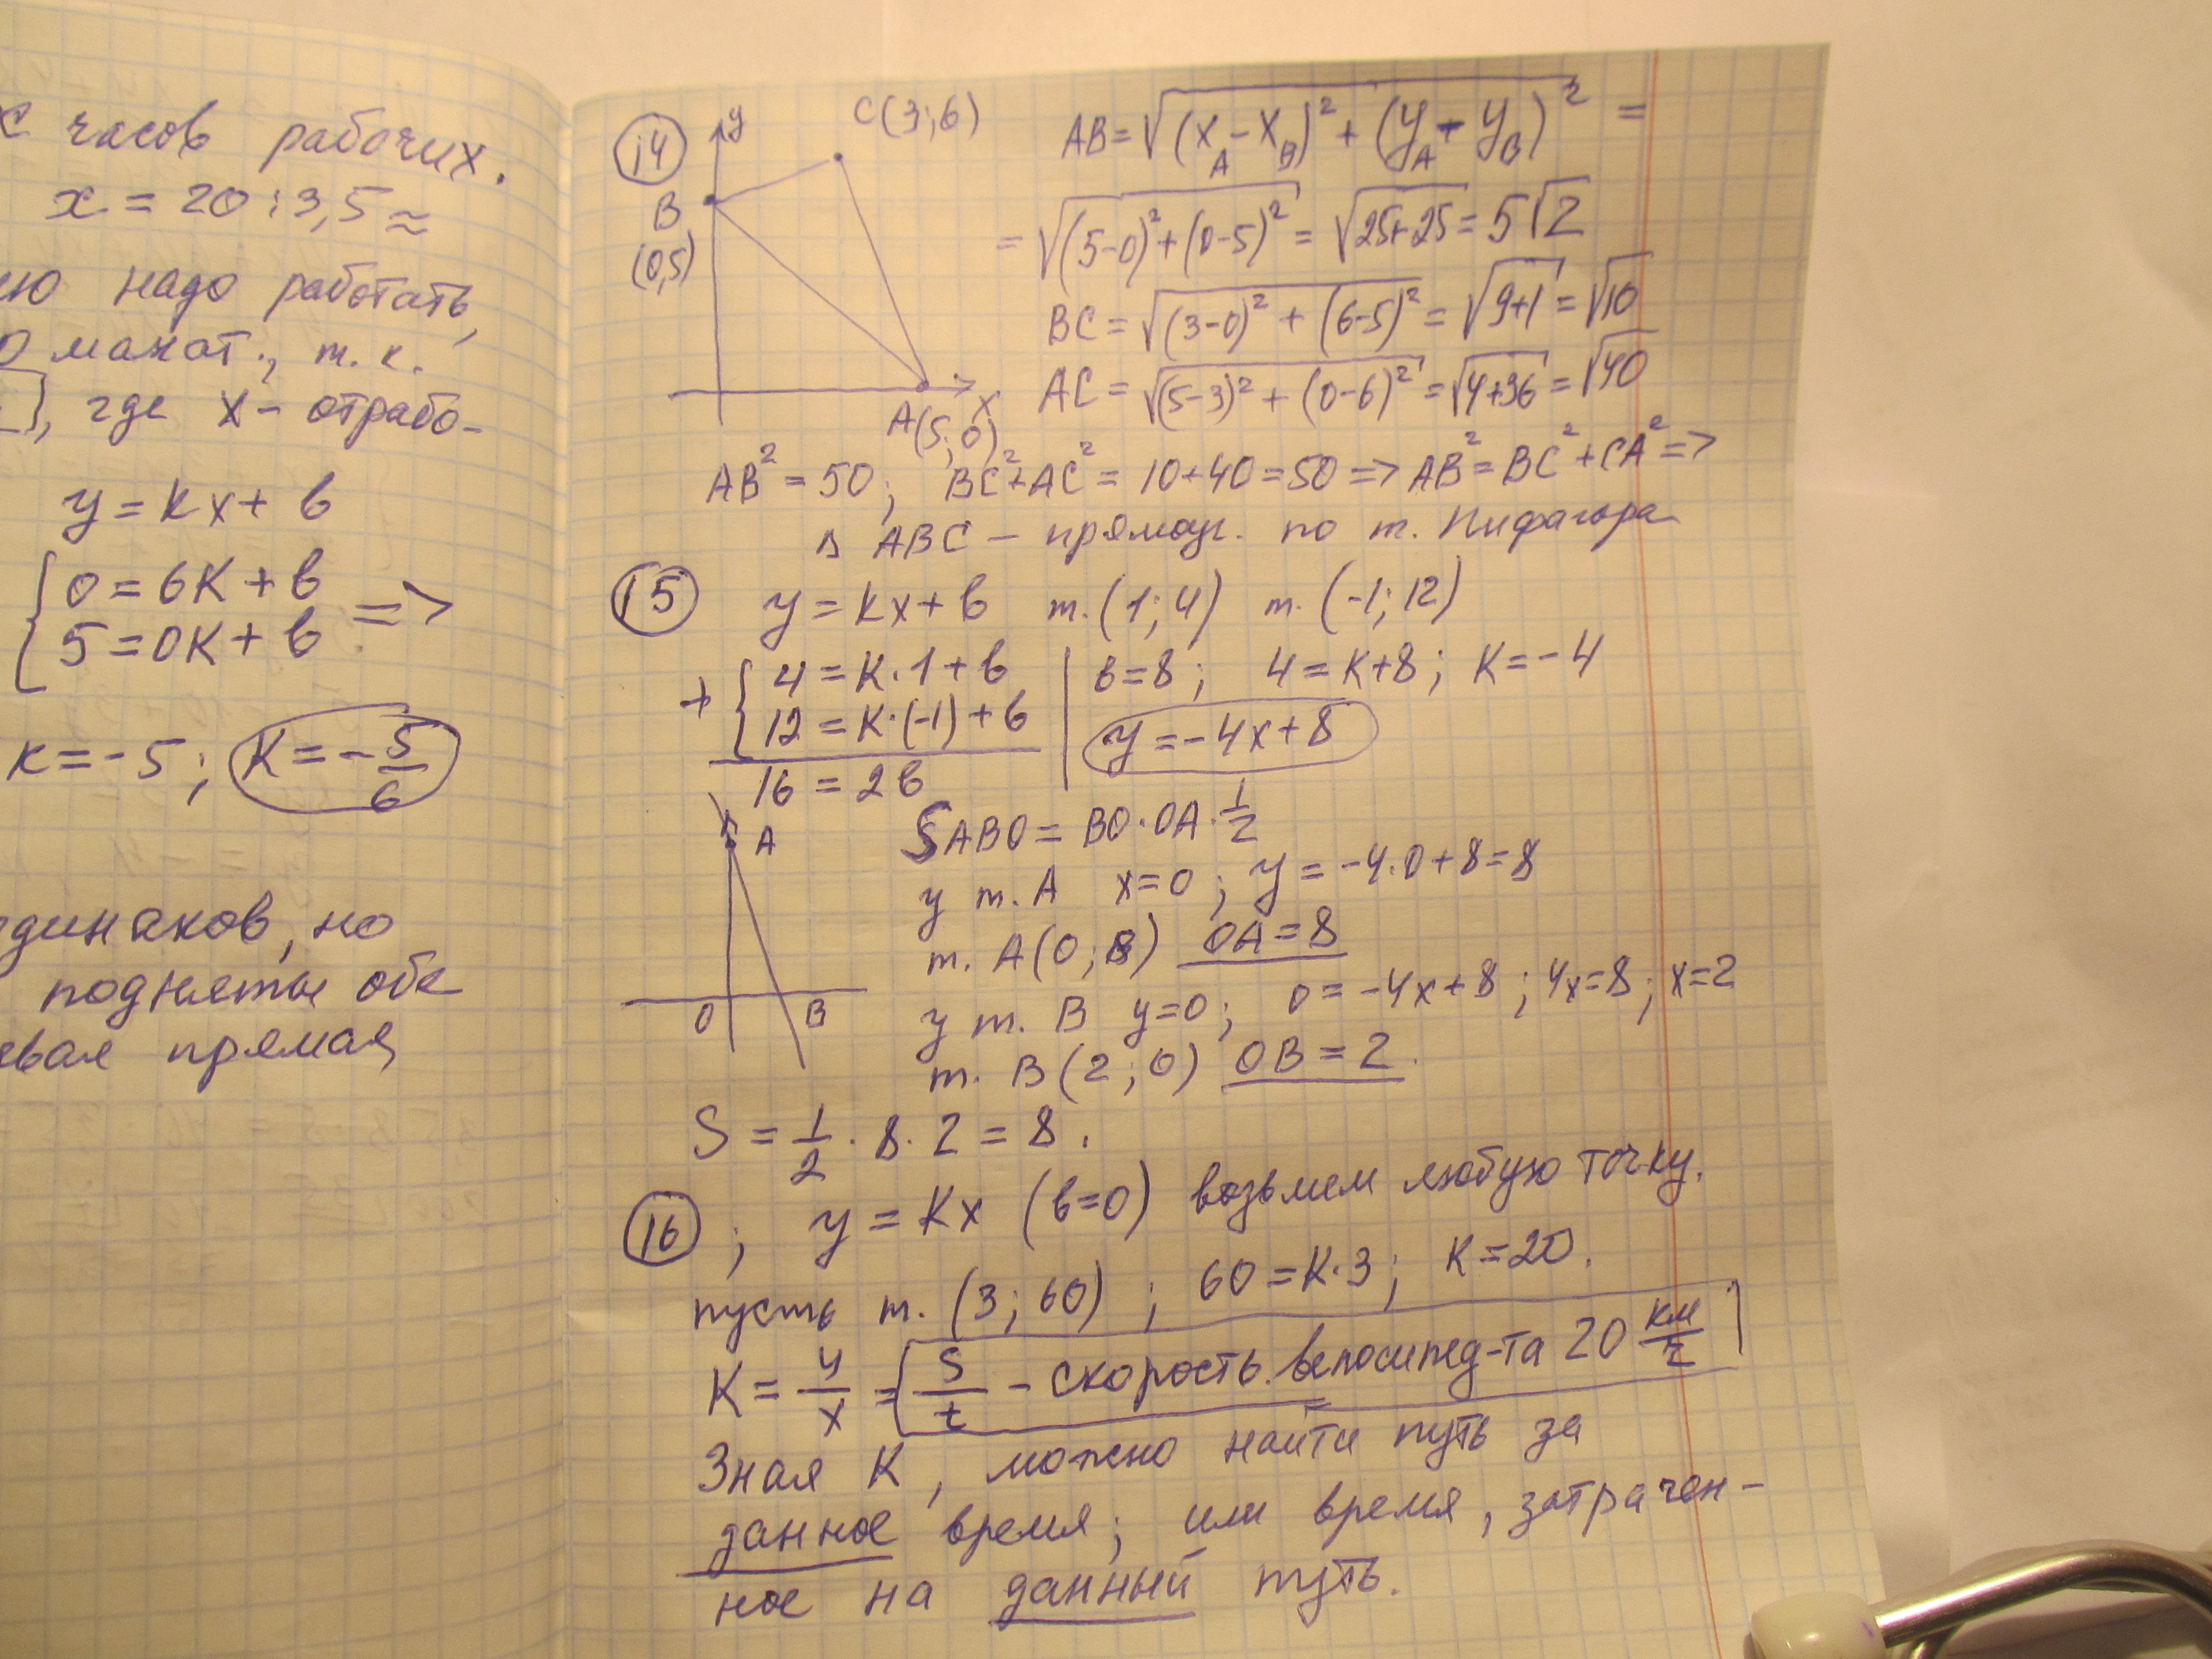 часов рабочих.
x = 20 : 3,5 ≈
надо работать,
манат., т. к.
где x – отрабо-
y = kx + b
0 = 6k + b
5 = 0k + b =>
k = -5; k = -5/6
но
подняты обе
прямая,
14
y
C(3;6)
B
(0,5)
x
A(5;0)
AB = √(x_A - x_B)² + (y_A - y_B)² =
= √(5-0)² + (0-5)² = √25+25 = 5√2
BC = √(3-0)² + (6-5)² = √9+1 = √10
AC = √(5-3)² + (0-6)² = √4+36 = √40
AB² = 50; BC² + AC² = 10+40 = 50 => AB² = BC² + CA² =>
△ ABC – прямоуг. по т. Пифагора
15 y = kx + b т. (1; 4) т. (-1; 12)
+ { 4 = k·1 + b
12 = k·(-1) + b
16 = 2b
b = 8; 4 = k+8; k = -4
y = -4x + 8
A
O B
S ABO = BO · OA · 1/2
у т. A x=0; y = -4·0+8 = 8
т. A(0; 8) OA = 8
у т. B y=0; 0 = -4x+8; 4x=8; x=2
т. B(2; 0) OB = 2.
S = 1/2 · 8 · 2 = 8.
16 ; y = kx (b=0) возьмем любую точку.
пусть т. (3; 60) ; 60 = k·3; k = 20.
k = y/x = S/t – скорость велосипед-та 20 км/ч
Зная k, можно найти путь за
данное время; или время, затрачен-
ное на данный путь.